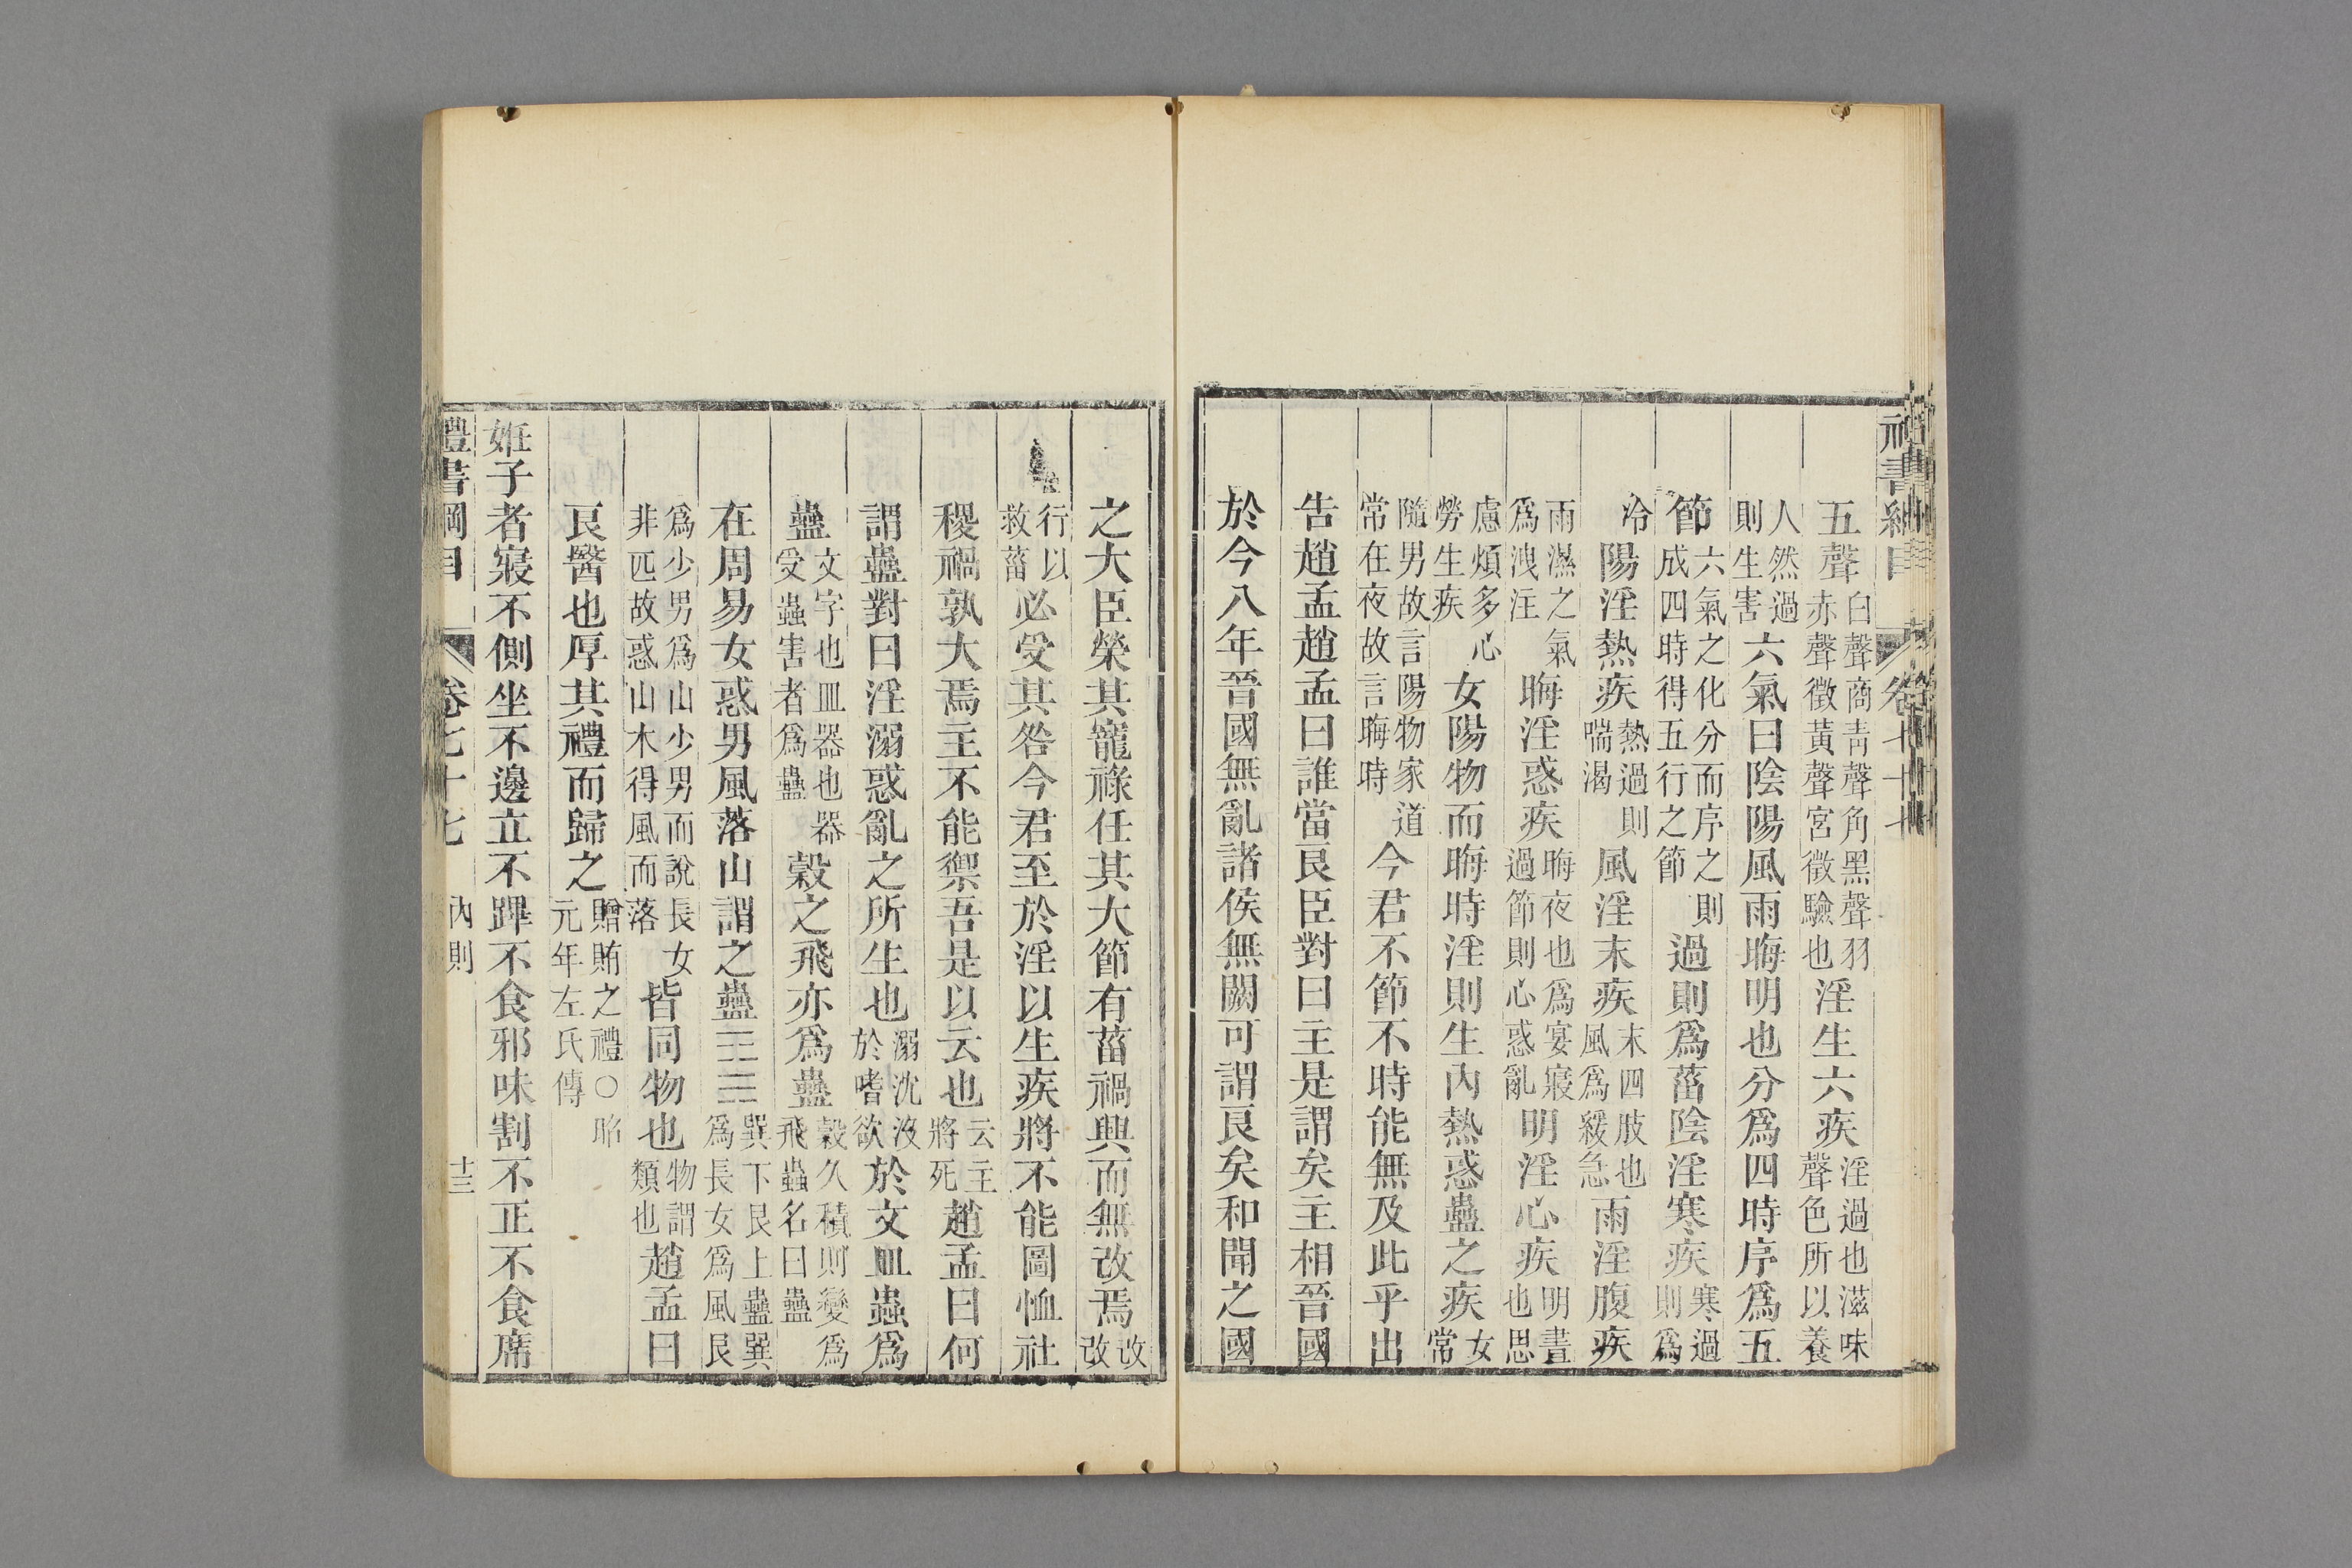 五聲白聲商青聲角黑聲羽赤聲徵黃聲宮徵驗也淫生六疾淫過也滋味聲色所以養
人然過則生害六氣曰陰陽風雨晦明也分爲四時序爲五
節六氣之化分而序之則成四時得五行之節過則爲菑陰淫寒疾寒過則爲
冷陽淫熱疾熱過則喘渴風淫末疾末四肢也風爲緩急雨淫腹疾
雨濕之氣爲洩注晦淫惑疾晦夜也爲宴寢過節則心惑亂明淫心疾明晝也思
慮煩多心勞生疾女陽物而晦時淫則生內熱惑蠱之疾女常
隨男故言陽物家道常在夜故言晦時今君不節不時能無及此乎出
告趙孟趙孟曰誰當良臣對曰主是謂矣主相晉國
於今八年晉國無亂諸侯無闕可謂良矣和聞之國
之大臣榮其寵祿任其大節有菑禍興而無改焉改改
行以救菑必受其咎今君至於淫以生疾將不能圖恤社
稷禍孰大焉主不能禦吾是以云也云主將死趙孟曰何
謂蠱對曰淫溺惑亂之所生也溺沈液於嗜欲於文皿蟲爲
蠱文字也皿器也器受蟲害者爲蠱穀之飛亦爲蠱穀久積則變爲飛蟲名曰蠱
在周易女惑男風落山謂之蠱巽下艮上蠱巽爲長女爲風艮
爲少男爲山少男而說長女非匹故惑山木得風而落皆同物也物謂類也趙孟曰
良醫也厚其禮而歸之贈賄之禮○昭元年左氏傳
姙子者寢不側坐不邊立不蹕不食邪味割不正不食席
禮書綱目 卷七十七 內則 十三